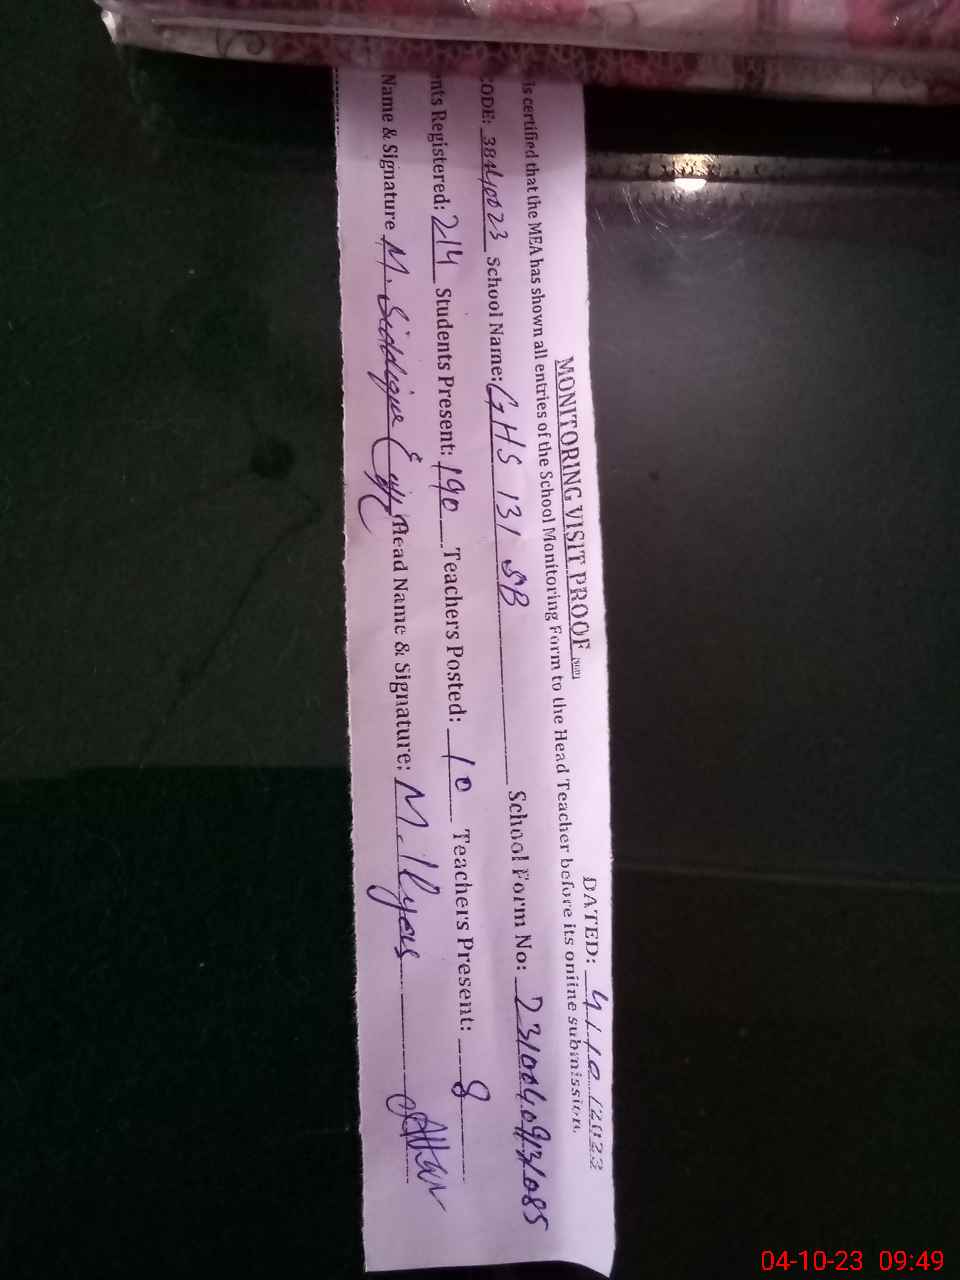 MONITORING VISIT PROOF
DATED: 4/10/2023
is certified that the MEA has shown all entries of the School Monitoring Form to the Head Teacher before its online submission.
CODE: 38440023 School Name: GHS 131 SB School Form No:
nts Registered: 214 Students Present: 190 Teachers Posted: 10 Teachers Present: 8
Name & Signature M. Siddique Head Name & Signature: M. Ilyas
04-10-23 09:49